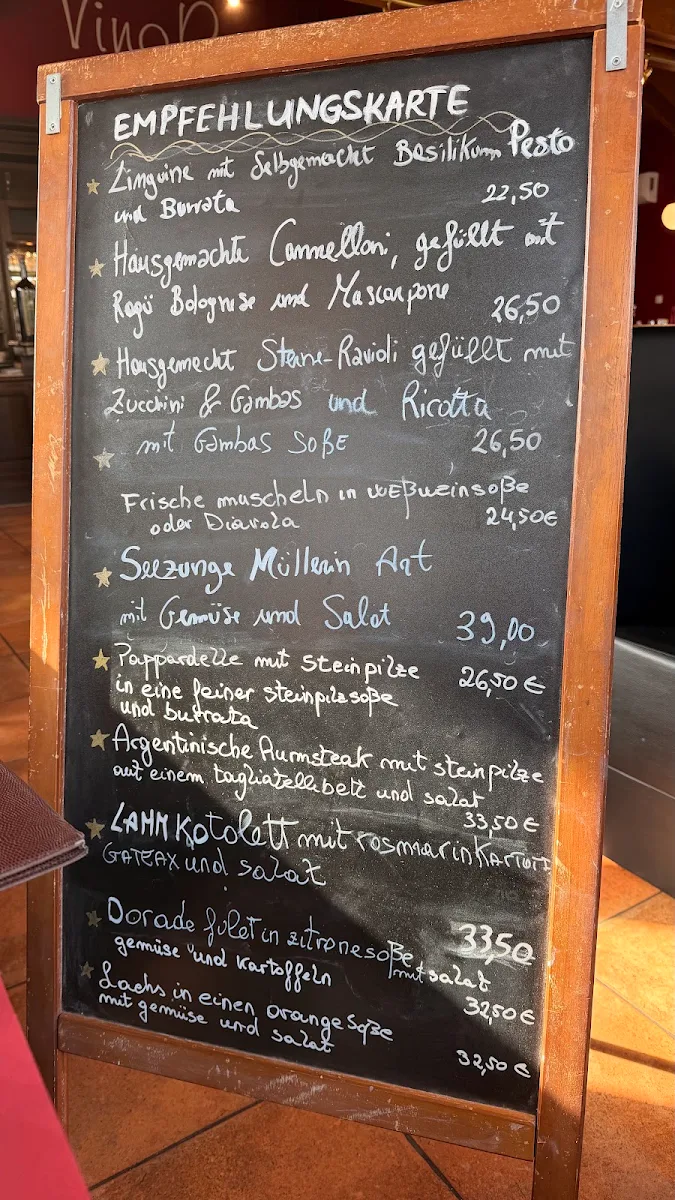 VinoP
EMPFEHLUNGSKARTE
Linguine mit Selbgemacht Basilikum Pesto
und Burrata 22,50
Hausgemachte Cannelloni, gefüllt mit
Ragù Bolognese und Mascarpone 26,50
Hausgemacht Stern-Ravioli gefüllt mit
Zucchini & Gambas und Ricotta
mit Gambas Soße 26,50
Frische muscheln in weßweinsoße
oder Diavola 24,50€
Seezunge Müllerin Art
mit Gemüse und Salat 39,00
Pappardelle mit steinpilze 26,50€
in eine feiner steinpilzsoße
und burrata
Argentinische Rumsteak mit steinpilze
auf einem tagliatellebett und salat
33,50€
LAMM Kotolett mit rosmarinKARTOFF
und salat
33,50
Dorade filet in zitronesoße mit salat
gemüse und Kartoffeln 32,50€
Lachs in einen orangesoße
mit gemüse und salat 32,50€